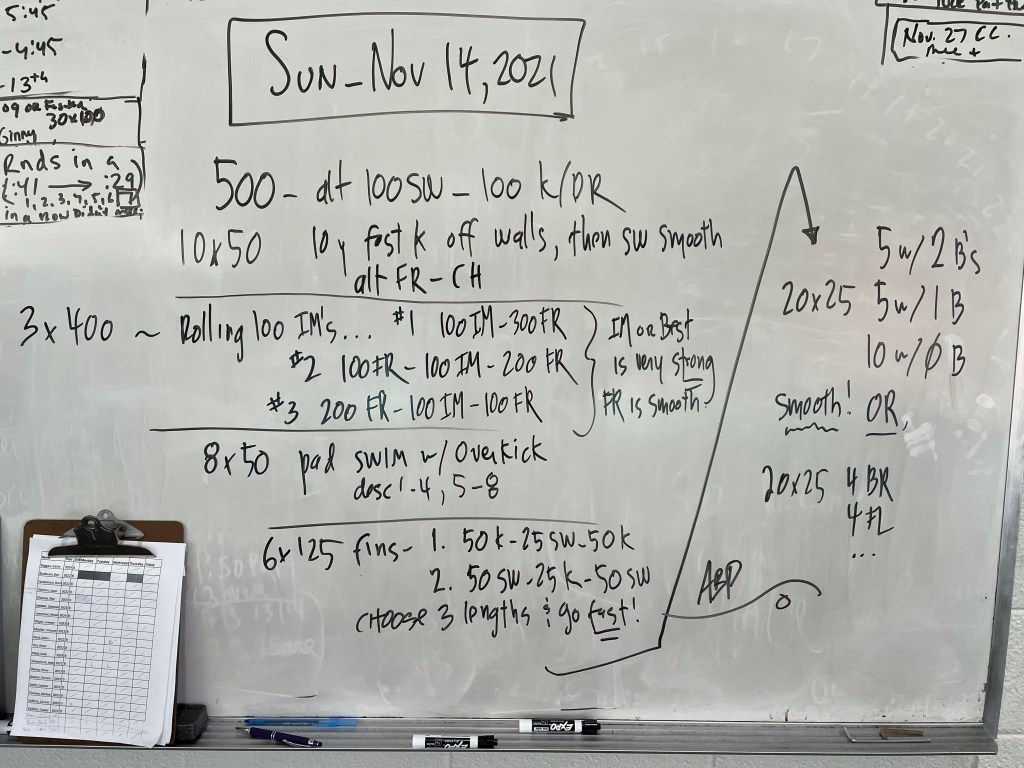 5:45
-4:45
-13
30x100
Ginny
Rnds in a
:41 → :29
1, 2, 3, 4, 5, 6, 7
in a row
Nov. 27 CC.
SUN-NOV 14, 2021
500 - alt 100 SW - 100 K/DR
10x50 10y fast K off walls, then SW smooth
alt FR - CH
3x400 ~ Rolling 100 IM's... #1 100 IM-300 FR
#2 100 FR-100 IM-200 FR
#3 200 FR-100 IM-100 FR
IM or Best
is very strong
FR is smooth
8x50 pad SWIM w/ Overkick
desc 1-4, 5-8
6x125 fins- 1. 50 K-25 SW-50 K
2. 50 SW-25 K-50 SW
CHOOSE 3 lengths & go fast!
5 w/ 2 B's
20x25 5 w/ 1 B
10 w/ 0 B
smooth! OR,
20x25 4 BR
4 FL
...
EXPO
EXPO